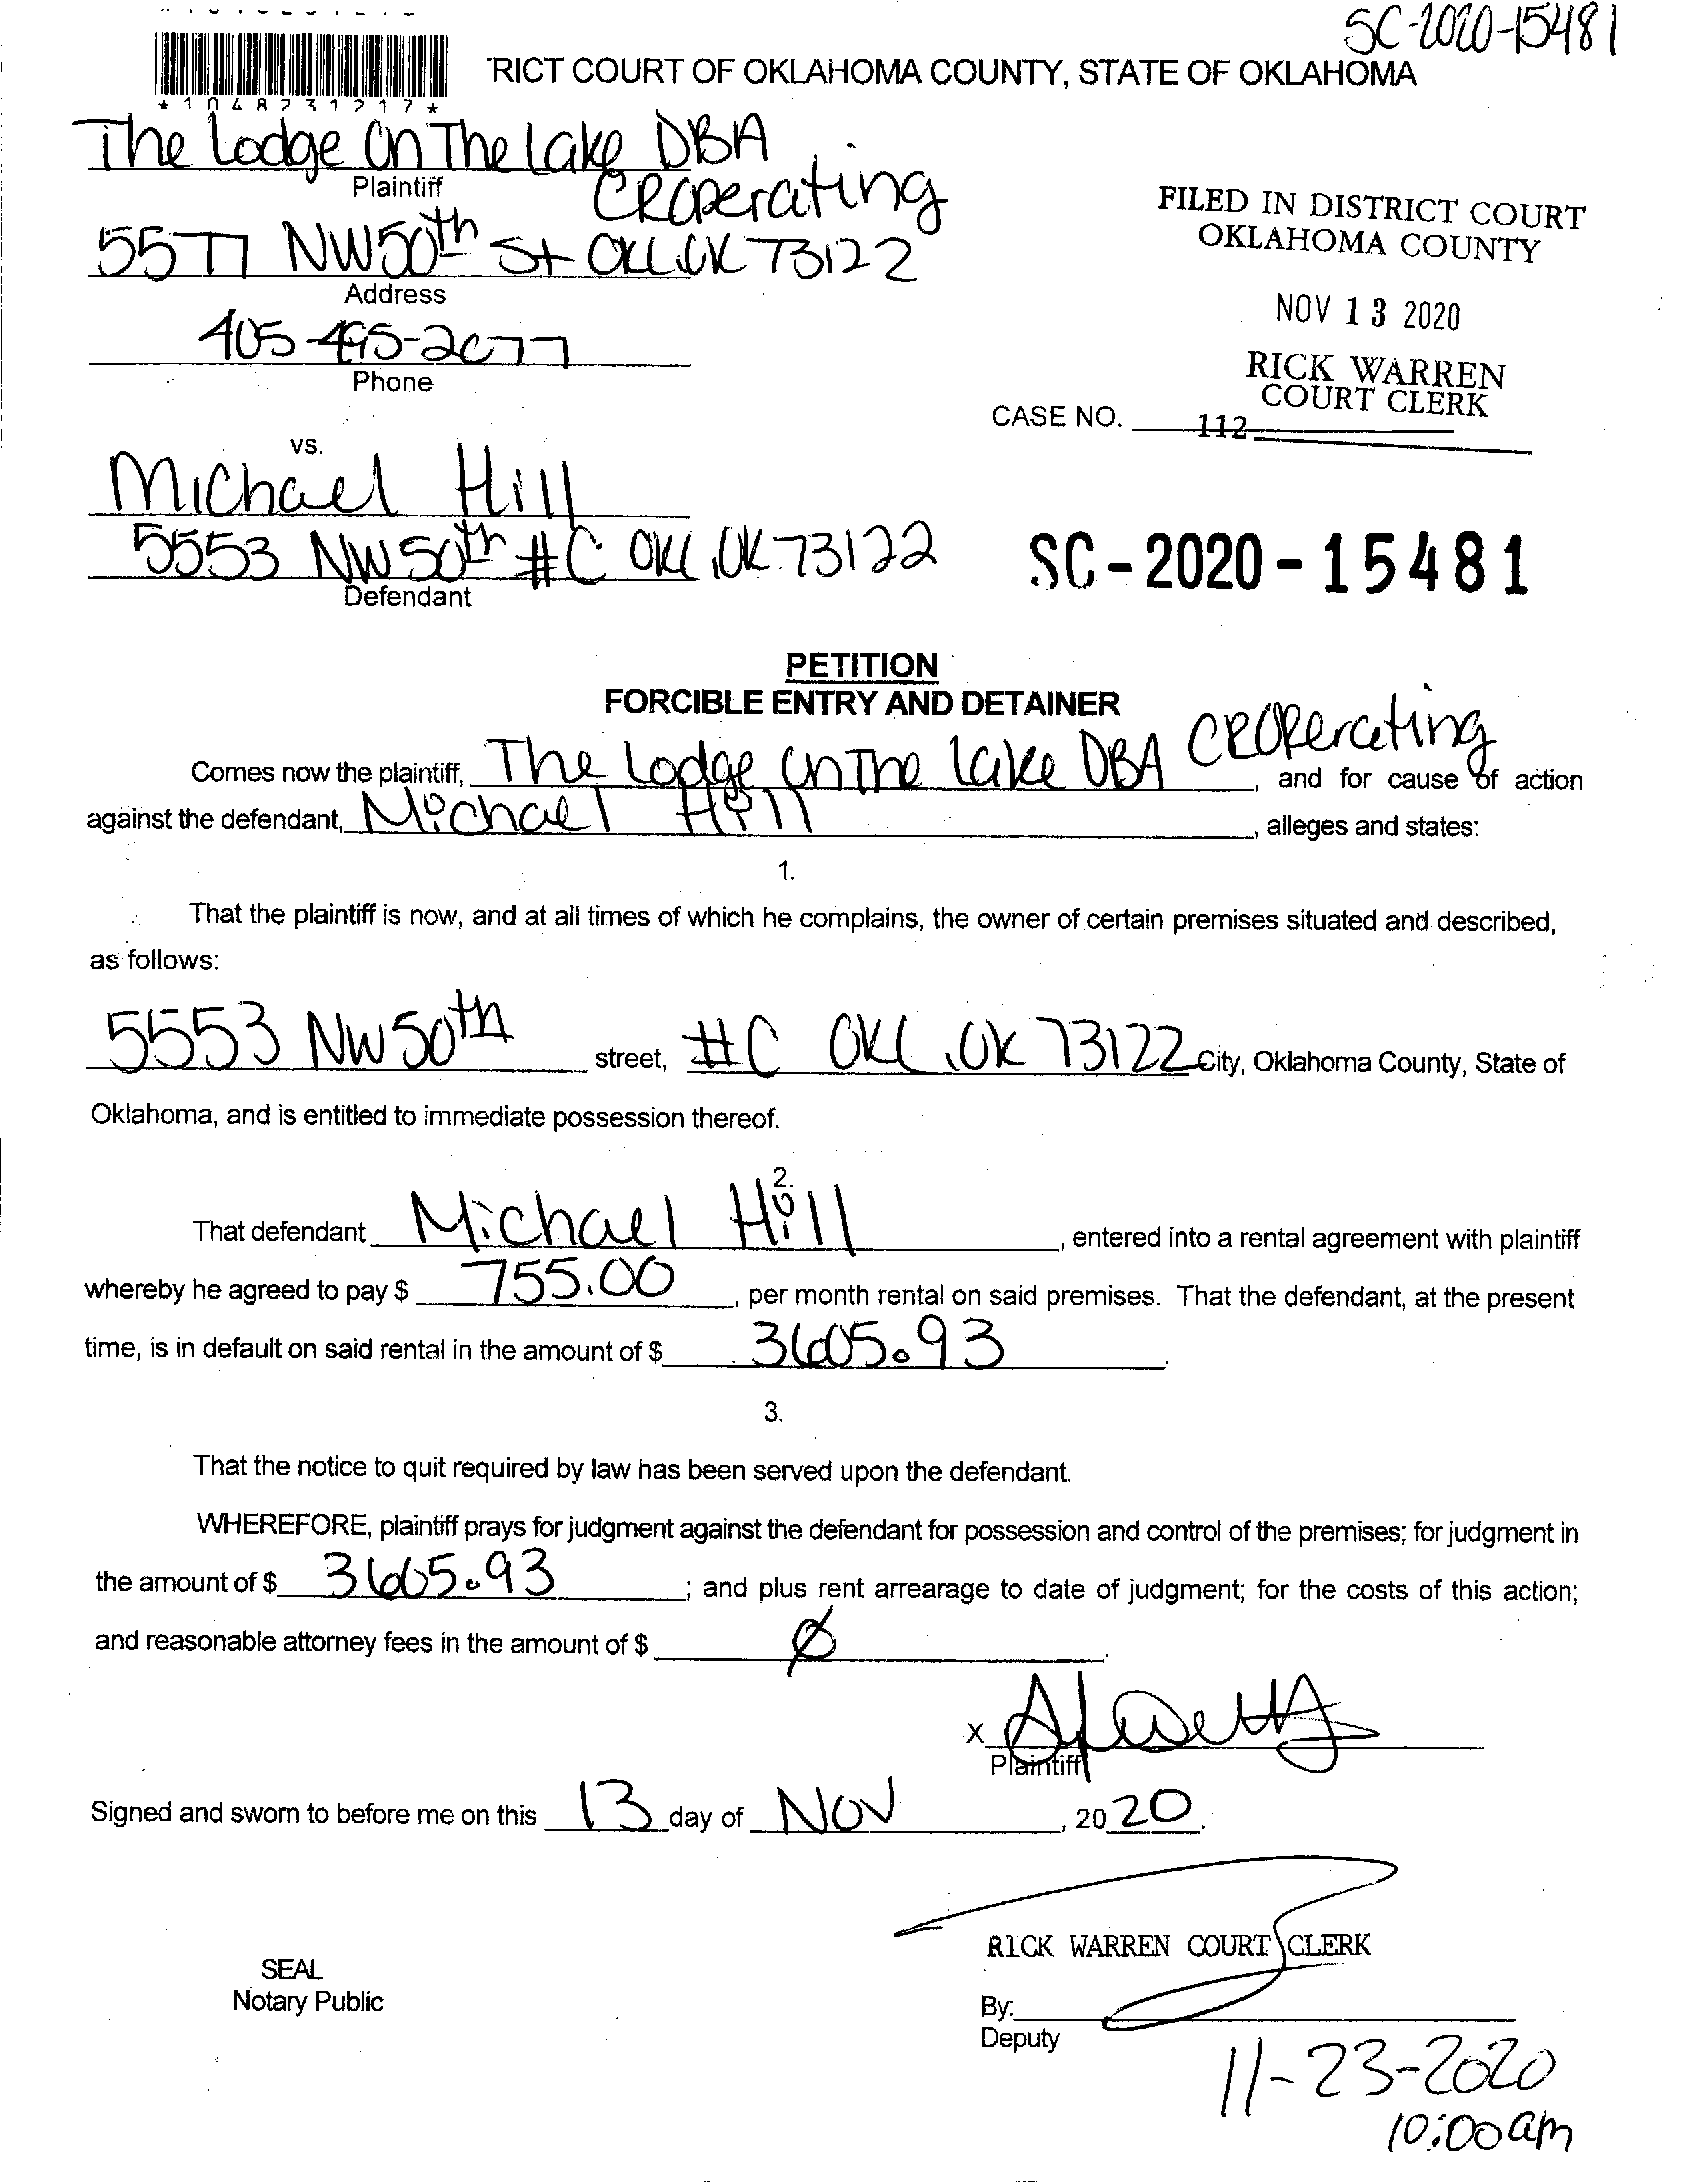 SC-2020-15481
*1048731217*
'RICT COURT OF OKLAHOMA COUNTY, STATE OF OKLAHOMA
The Lodge On The Lake DBA
CROperating
Plaintiff
5577 NW 50th St OKC, OK 73122
Address
405-495-2077
Phone
FILED IN DISTRICT COURT
OKLAHOMA COUNTY
NOV 13 2020
RICK WARREN
COURT CLERK
CASE NO. 112
vs.
Michael Hill
5553 NW 50th #C OKC, OK 73122
Defendant
SC-2020-15481
PETITION
FORCIBLE ENTRY AND DETAINER
Comes now the plaintiff, The Lodge On The Lake DBA CROperating, and for cause of action
against the defendant, Michael Hill, alleges and states:
1.
That the plaintiff is now, and at all times of which he complains, the owner of certain premises situated and described,
as follows:
5553 NW 50th street, #C OKC, OK 73122 City, Oklahoma County, State of
Oklahoma, and is entitled to immediate possession thereof.
2.
That defendant Michael Hill, entered into a rental agreement with plaintiff
whereby he agreed to pay $ 755.00, per month rental on said premises. That the defendant, at the present
time, is in default on said rental in the amount of $ 3605.93.
3.
That the notice to quit required by law has been served upon the defendant.
WHEREFORE, plaintiff prays for judgment against the defendant for possession and control of the premises; for judgment in
the amount of $ 3605.93; and plus rent arrearage to date of judgment; for the costs of this action;
and reasonable attorney fees in the amount of $ Ø.
X
Plaintiff
Signed and sworn to before me on this 13 day of NOV, 2020.
RICK WARREN COURT CLERK
SEAL
Notary Public
By:
Deputy
11-23-2020
10:00am